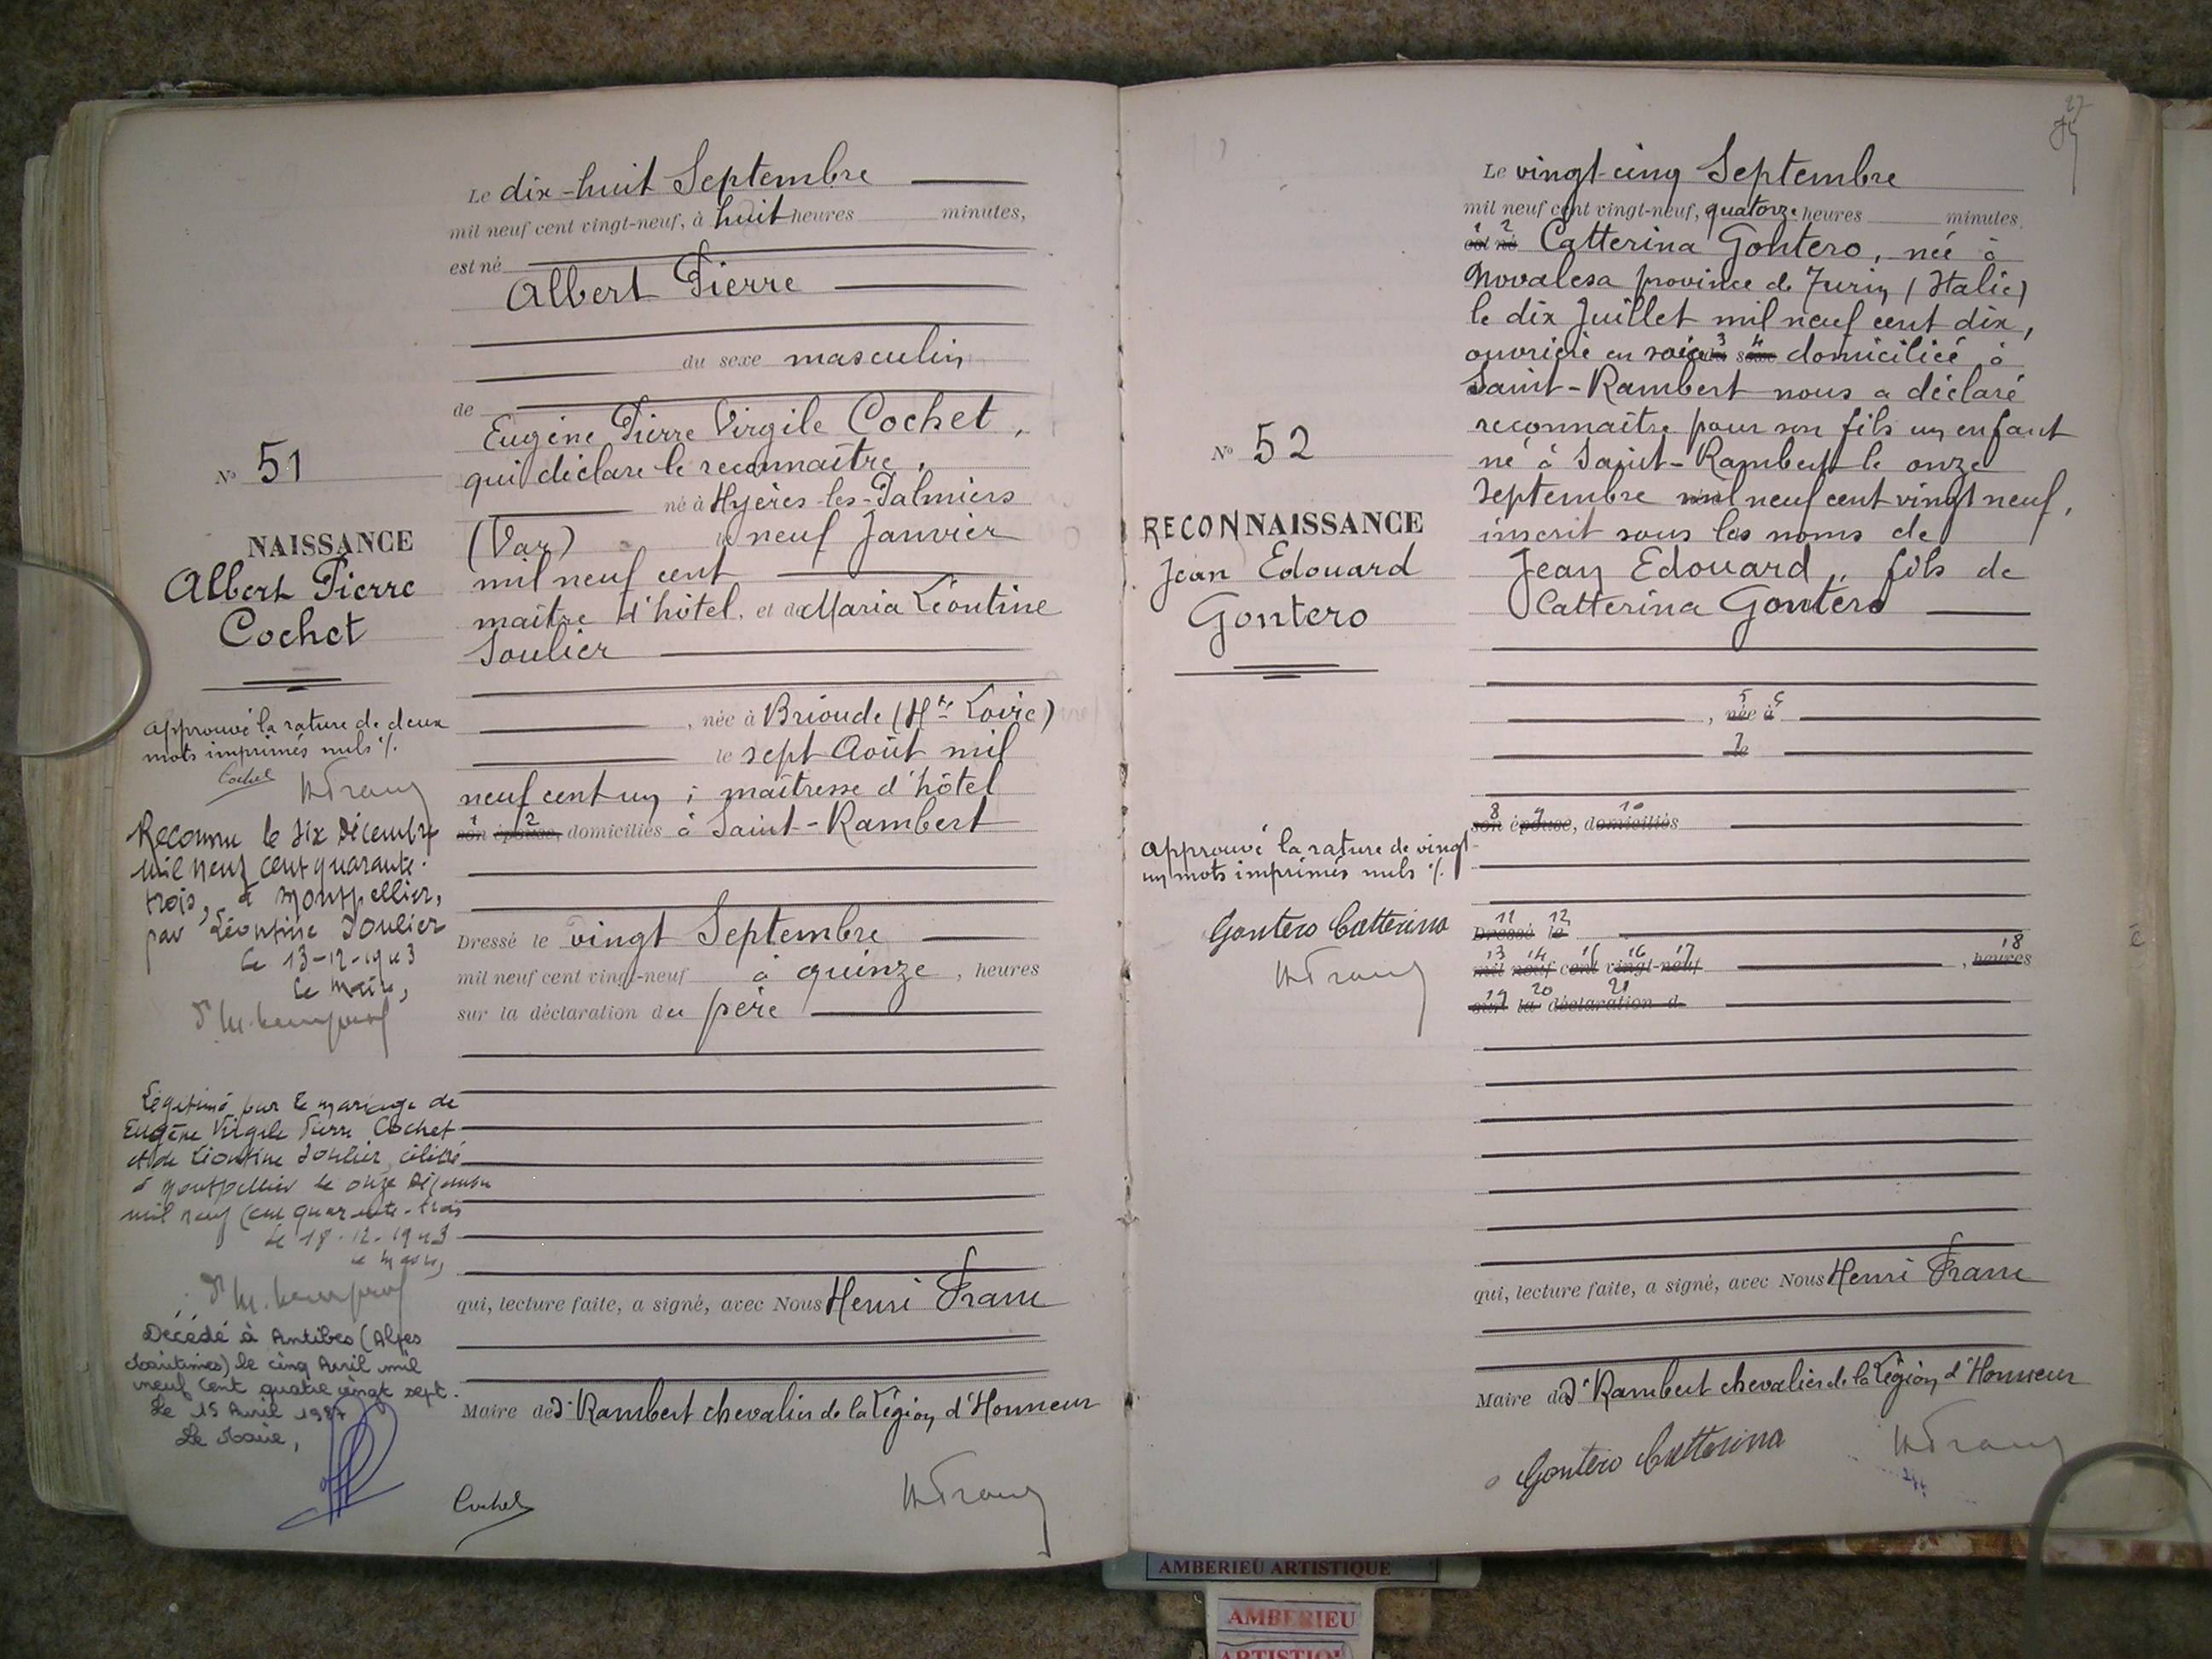 Le dix-huit Septembre
mil neuf cent vingt-neuf, à huit heures minutes,
est né
Albert Pierre
du sexe masculin
de
Eugène Pierre Virgile Cochet,
qui déclare le reconnaître,
né à Hyères-les-Palmiers
(Var) le neuf Janvier
mil neuf cent
maître d'hôtel, et de Maria Léontine
Soulier
, née à Brioude (Hte Loire)
le sept Août mil
neuf cent un ; maîtresse d'hôtel
1 2
son épouse, domiciliés à Saint-Rambert
Dressé le vingt Septembre
mil neuf cent vingt-neuf à quinze, heures
sur la déclaration du père
qui, lecture faite, a signé, avec Nous Henri Franc
Maire de St Rambert chevalier de la Légion d'Honneur
Cochet
HFranc
N° 51
NAISSANCE
Albert Pierre
Cochet
Approuvé la rature de deux
mots imprimés nuls %.
Cochet
HFranc
Reconnu le six Décembre
mil neuf cent quarante-
trois, à Montpellier,
par Léontine Soulier
Le 13-12-1943
Le Maire,
Légitimé par le mariage de
Eugène Virgile Pierre Cochet
et de Léontine Soulier, célébré
à Montpellier le onze Décembre
mil neuf cent quarante-trois
Le 18-12-1943
Le Maire,
Décédé à Antibes (Alpes
Maritimes) le cinq Avril mil
neuf cent quatre vingt sept.
Le 15 Avril 1987
Le Maire,
27
Le vingt-cinq Septembre
mil neuf cent vingt-neuf, quatorze heures minutes,
1 2
est né Catterina Gontero, née à
Novalesa province de Turin (Italie)
le dix Juillet mil neuf cent dix,
3 4
ouvrière en soie du sexe domiciliée à
Saint-Rambert nous a déclaré
reconnaître pour son fils un enfant
né à Saint-Rambert le onze
Septembre mil neuf cent vingt neuf,
inscrit sous les noms de
Jean Edouard, fils de
Catterina Gontero
5 6
, née à
7
le
8 9 10
son épouse, domiciliés
11 12
Dressé le
13 14 15 16 17 18
mil neuf cent vingt-neuf , heures
19 20 21
sur la déclaration d
qui, lecture faite, a signé, avec Nous Henri Franc
Maire de St Rambert chevalier de la Légion d'Honneur
Gontero Catterina
HFranc
N° 52
RECONNAISSANCE
Jean Edouard
Gontero
Approuvé la rature de vingt-
un mots imprimés nuls %.
Gontero Catterina
HFranc
AMBERIEU ARTISTIQUE
AMBERIEU
ARTISTIQU